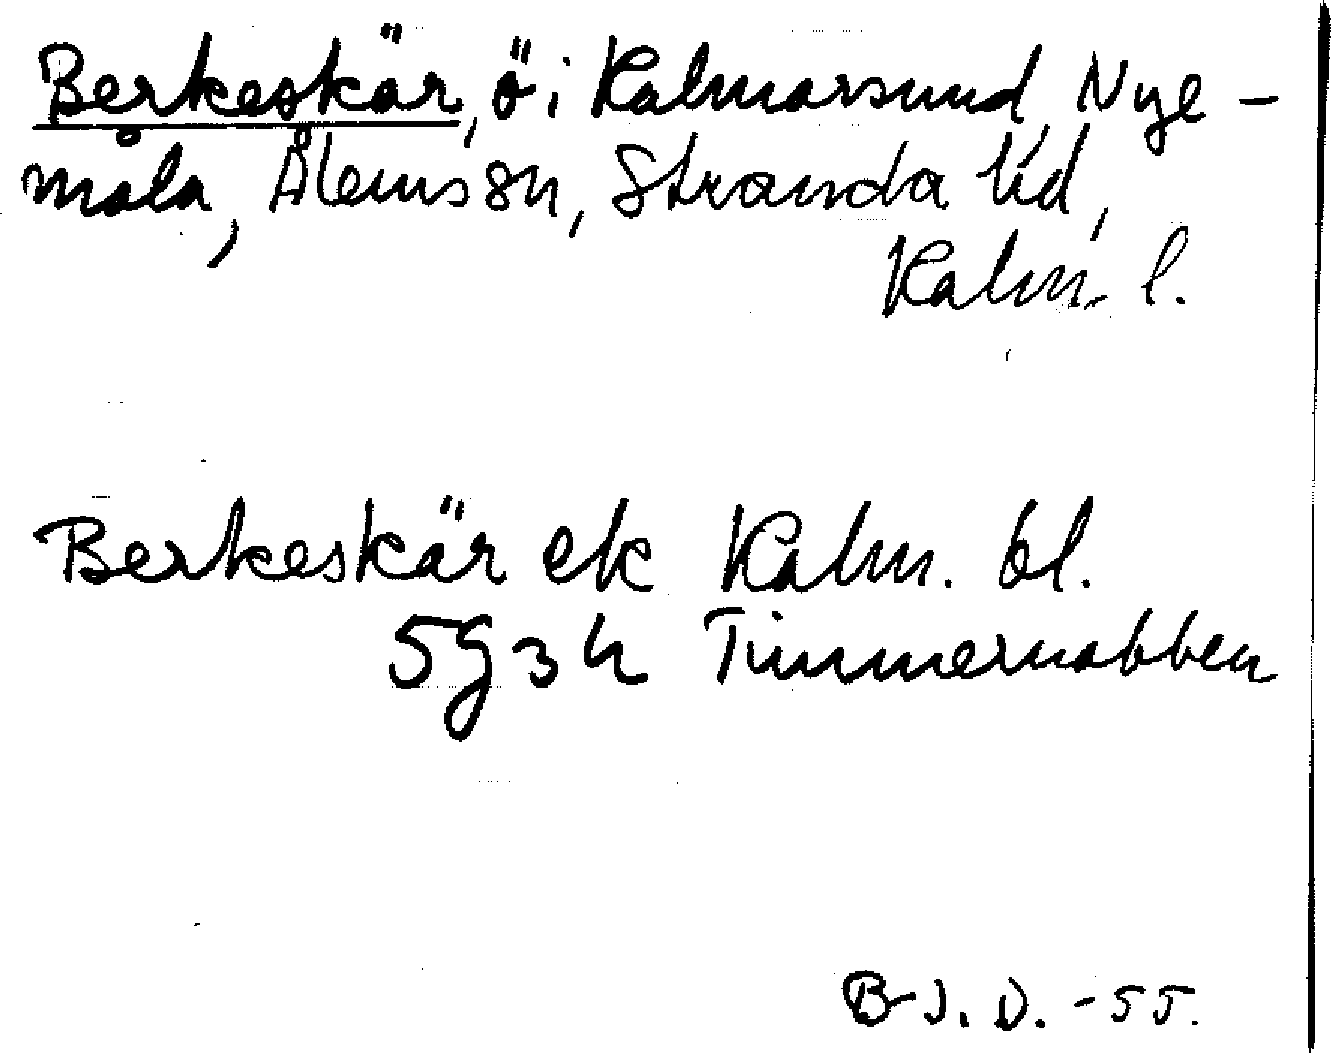 Berkeskär, ö i Kalmarsund, Nye-
måla, Ålems sn, Stranda hd,
Kalm. l.
Berkeskär ek Kalm. bl.
5g3h Timmernabben
B-J. D. -55.